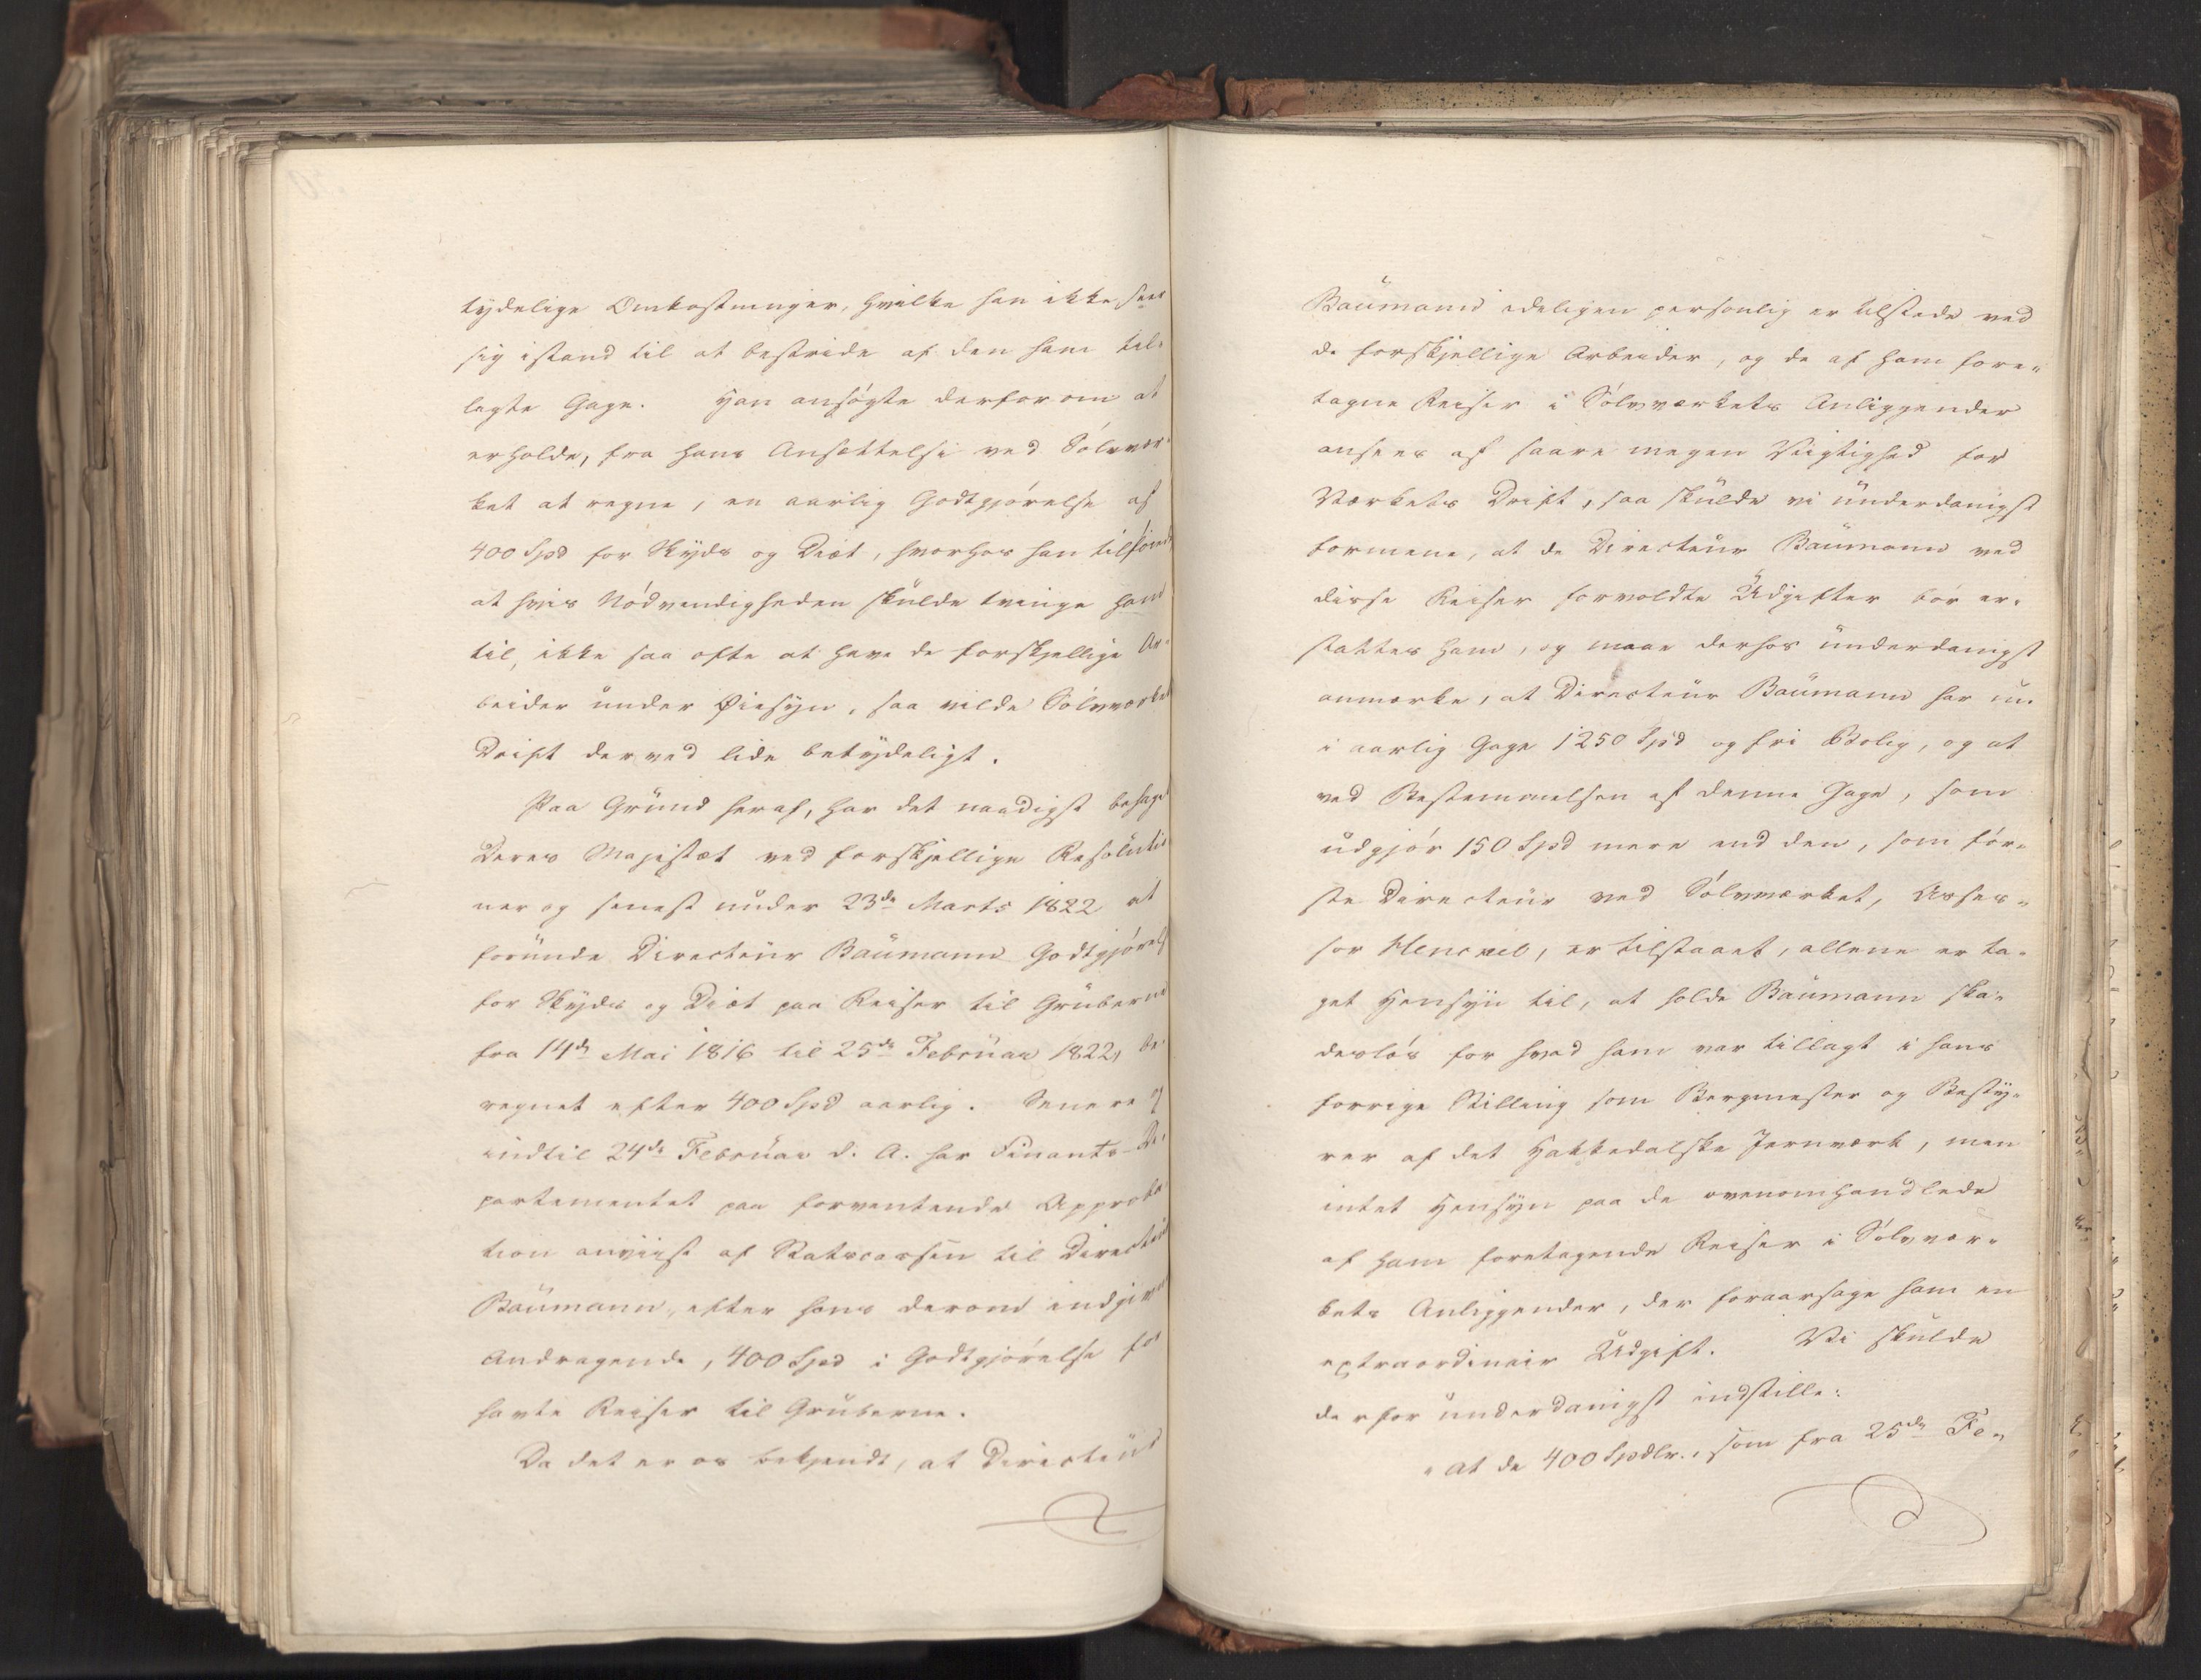 tydelige Omkostninger, hvilke han ikke saae
sig istand til at bestride af den ham til-
lagte Gage. Han ansøgte derfor om at
erholde, fra hans Ansættelse ved Sølvvær-
ket at regne, en aarlig Godtgjørelse af
400 Spd for Skyds og Diæt, hvorhos han tilføiede
at hvis Nødvendigheden skulde tvinge ham
til, ikke saa ofte at have de forskjellige Ar-
beider under Øiesyn, saa vilde Sølvværkets
Drift derved lide betydeligt.
Paa Grund heraf, har det naadigst behaget
Deres Majestæt ved forskjellige Resolutio
ner og senest under 23de Marts 1822 at
forunde Directeur Baumann Godtgjørelse
for Skyds og Diæt paa Reiser til Gruberne
fra 14de Mai 1816 til 25de Februar 1822, be-
regnet efter 400 Spd aarlig. Senere og
indtil 24de Februar d. A. har Finants-De-
partementet paa forventende Approba-
tion anviist af Statscassen til Directeur
Baumann, efter hans derom indgivne
Andragende, 400 Spd i Godtgjørelse for
havte Reiser til Gruberne.
Da det er os bekjendt, at Directeur
Baumann ideligen personlig er tilstede ved
de forskjellige Arbeider, og de af ham fore-
tagne Reiser i Sølvværkets Anliggender
ansees af saare megen Vigtighed for
Værkets Drift, saa skulde vi underdanigst
formene, at de Directeur Baumann ved
disse Reiser forvoldte Udgifter bør er-
stattes ham, og maae derhos underdanigst
anmærke, at Directeur Baumann har nu
i aarlig Gage 1250 Spd og fri Bolig, og at
ved Bestemmelsen af denne Gage, som
udgjør 150 Spd mere end den, som før-
ste Directeur ved Sølvværket, Asses-
sor Henckel, er tilstaaet, allene er ta-
get Hensyn til, at holde Baumann ska-
desløs for hvad ham var tillagt i hans
forrige Stilling som Bergmester og Besty-
rer af det Hakkedalske Jernværk, men
intet Hensyn paa de ovenomhandlede
af ham foretagende Reiser i Sølvvær-
kets Anliggender, der foraarsage ham en
extraordinair Udgift. Vi skulde
derfor underdanigst indstille:
"at de 400 Spdlr., som fra 25de Fe-